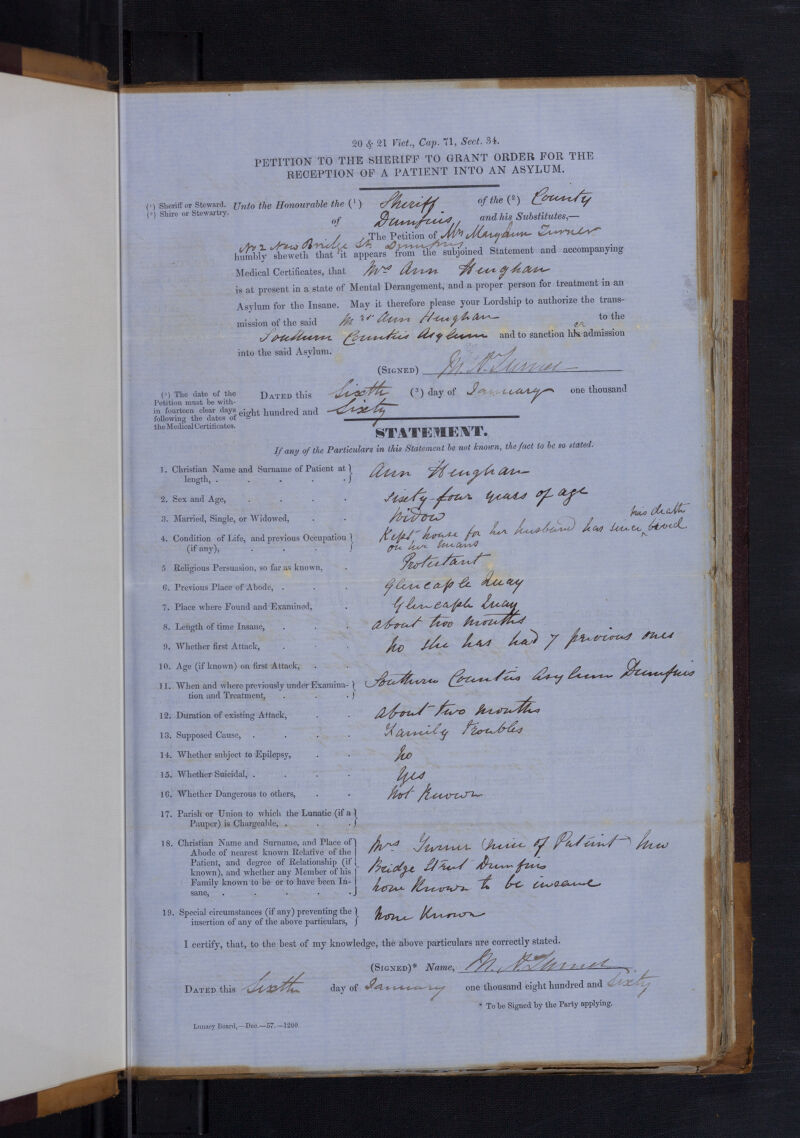 20 & 21 Vict., Cap. 71, Sect. 34.
PETITION TO THE SHERIFF TO GRANT ORDER FOR THE
RECEPTION OF A PATIENT INTO AN ASYLUM.
(¹) Sheriff or Steward.
(²) Shire or Stewartry.
Unto the Honourable the (¹) Sheriff of the (²) County
of Dumfries, and his Substitutes,—
The Petition of Mrs Turner
No 2 New Bridge St. Dumfries
humbly sheweth that it appears from the subjoined Statement and accompanying
Medical Certificates, that Mrs Ann Heughan
is at present in a state of Mental Derangement, and a proper person for treatment in an
Asylum for the Insane. May it therefore please your Lordship to authorize the trans-
mission of the said Mrs Ann Heughan to the
Southern Counties Asylum and to sanction her admission
into the said Asylum.
(SIGNED) M. A. Turner
(³) The date of the
Petition must be with-
in fourteen clear days
following the dates of
the Medical Certificates.
DATED this Sixth (³) day of January one thousand
eight hundred and Sixty
STATEMENT.
If any of the Particulars in this Statement be not known, the fact to be so stated.
1. Christian Name and Surname of Patient at
length, . Ann Heughan
2. Sex and Age, Sixty-four years of age
3. Married, Single, or Widowed, Widow
4. Condition of Life, and previous Occupation
(if any), Kept house for her husband has since his death lived
on her means
5 Religious Persuasion, so far as known, Protestant
6. Previous Place of Abode, Glencaple Quay
7. Place where Found and Examined, Glencaple Quay
8. Length of time Insane, about two months
9. Whether first Attack, No she has had 7 previous ones
10. Age (if known) on first Attack,
11. When and where previously under Examina-
tion and Treatment, Southern Counties Asylum Dumfries
12. Duration of existing Attack, about two months
13. Supposed Cause, Family Troubles
14. Whether subject to Epilepsy, No
15. Whether Suicidal, Yes
16. Whether Dangerous to others, Not Known
17. Parish or Union to which the Lunatic (if a
Pauper) is Chargeable,
18. Christian Name and Surname, and Place of
Abode of nearest known Relative of the
Patient, and degree of Relationship (if
known), and whether any Member of his
Family known to be or to have been In-
sane,
Mrs Turner Niece of Patient New
Bridge Street Dumfries
none Known to be insane
19. Special circumstances (if any) preventing the
insertion of any of the above particulars, None Known
I certify, that, to the best of my knowledge, the above particulars are correctly stated.
(SIGNED)* Name, M. A. Turner
DATED this Sixth day of January one thousand eight hundred and Sixty
* To be Signed by the Party applying.
Lunacy Board,—Dec.—57.—1200